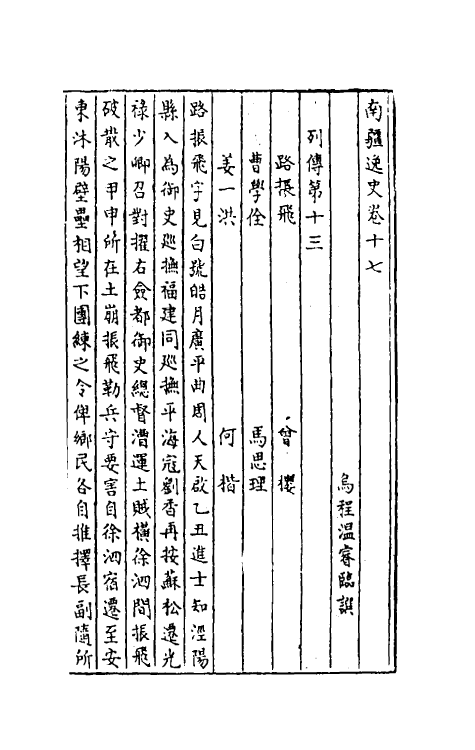 南疆逸史卷十七
烏程温睿臨譔
列傳第十三
路振飛 曾櫻
曹學佺 馬思理
姜一洪 何楷
路振飛字見白號皓月廣平曲周人天啟乙丑進士知涇陽
縣入為御史巡撫福建同巡撫平海寇劉香再按蘇松遷光
祿少卿召對擢右僉都御史總督漕運土賊橫徐泗間振飛
破散之甲申所在土崩振飛勒兵守要害自徐泗宿遷至安
東沭陽壁壘相望下團練之令俾鄉民各自推擇長副隨所